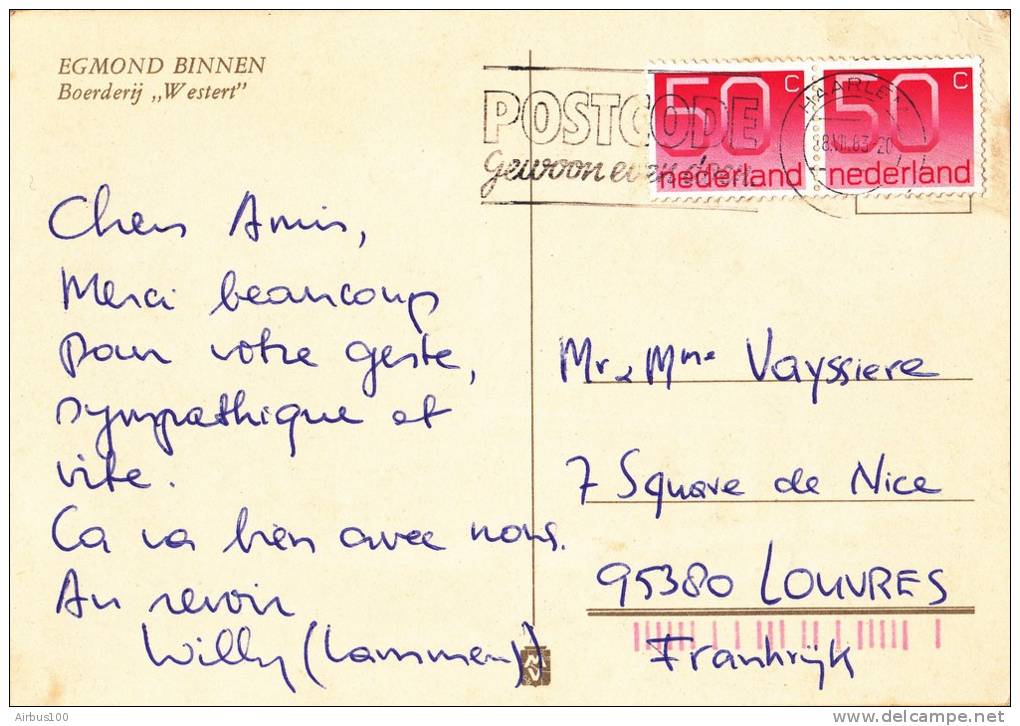 EGMOND BINNEN
Boerderij „Westert”
POSTCODE
gewoon even doen
50 C
nederland
50 C
nederland
HAARLEM
Chers Amis,
Merci beaucoup
pour votre geste,
sympathique et
vite.
Ca va bien avec nous.
Au revoir
Willy (Lammers)
Mr & Mme Vayssiere
7 Square de Nice
95380 LOUVRES
Frankrijk
Airbus100
www.delcampe.net